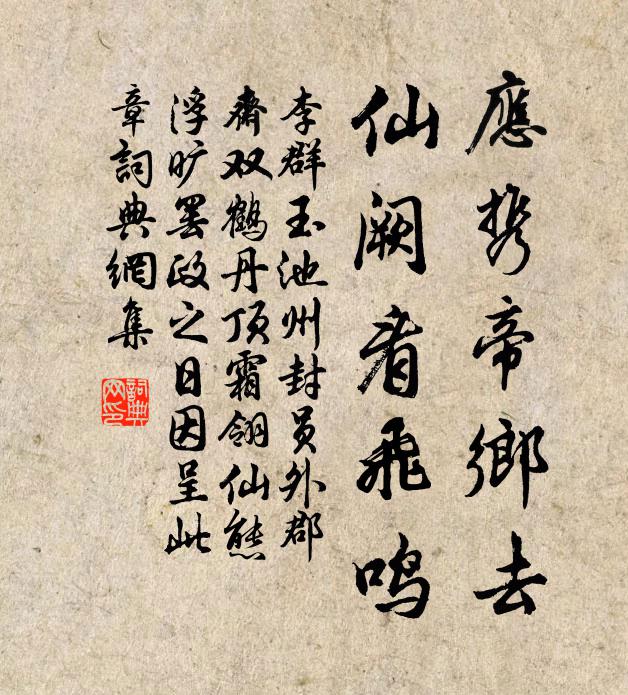 應携帝鄉去
仙阙看飛鳴
李群玉池州封員外郡
齋双鶴丹頂霜翎仙態
浮旷罢政之日因呈此
章詞典網集
詞典
网印